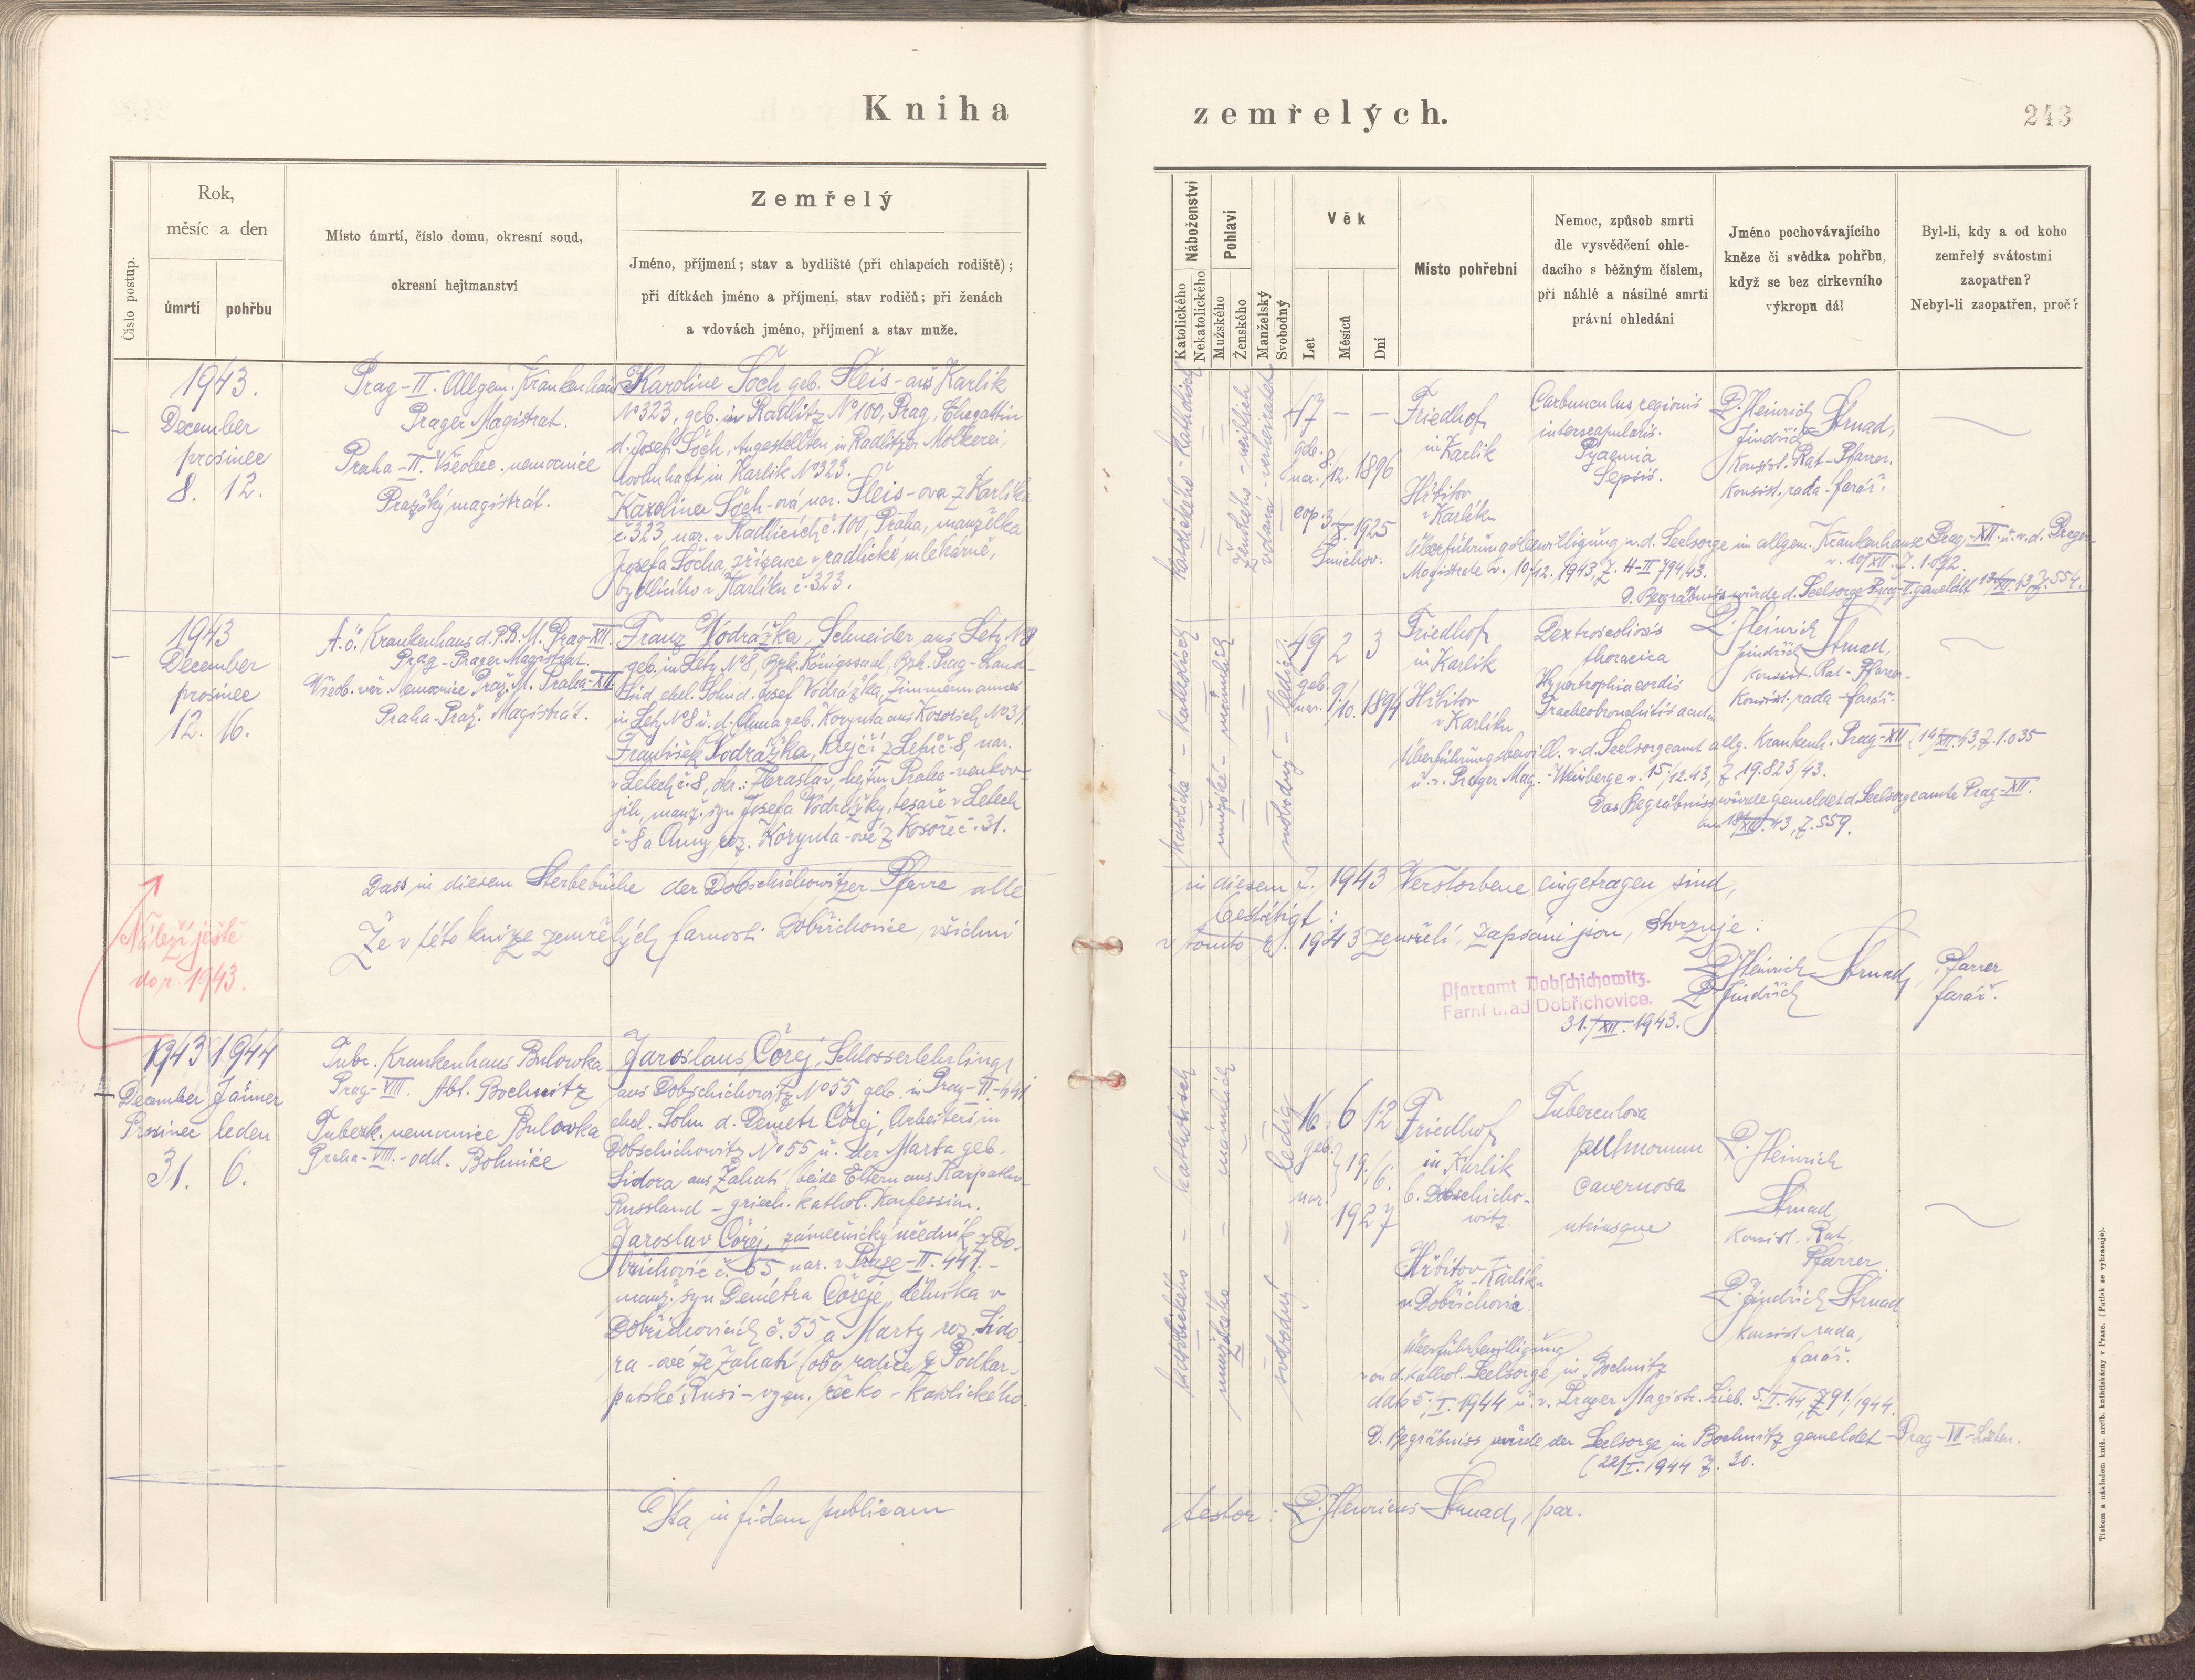 Kniha
zemřelých.
243
Číslo postup.
Rok,
měsíc a den
úmrtí
pohřbu
Místo úmrtí, číslo domu, okresní soud,
okresní hejtmanství
Zemřelý
Jméno, příjmení; stav a bydliště (při chlapcích rodiště);
při dítkách jméno a příjmení, stav rodičů; při ženách
a vdovách jméno, příjmení a stav muže.
Náboženství
Katolického
Nekatolického
Pohlaví
Mužského
Ženského
Manželský
Svobodný
Věk
Let
Měsíců
Dní
Místo pohřební
Nemoc, způsob smrti
dle vysvědčení ohle-
dacího s běžným číslem,
při náhlé a násilné smrti
právní ohledání
Jméno pochovávajícího
kněze či svědka pohřbu,
když se bez církevního
výkropu dál
Byl-li, kdy a od koho
zemřelý svátostmi
zaopatřen?
Nebyl-li zaopatřen, proč?
1943.
December
prosinec
8. 12.
Prag-II. Allgem. Krankenhaus
Prager Magistrat.
Praha-II. Všeobec. nemocnice
Pražský magistrát.
Karoline Šoch geb. Šleis - aus Karlik
No 323, geb. in Radlitz No 100, Prag, Ehegattin
d. Josef Šoch, Angestellten in Radlitzer Molkerei,
wohnhaft in Karlik No 323.
Karolina Šoch-ová nar. Šleis-ova z Karlíka
č. 323, nar. v Radlicích č. 100, Praha, manželka
Josefa Šocha, zřízence v radlické mlékárně,
bydlícího v Karlíku č. 323.
katolického - katholisch
ženského - weiblich
vdaná - verheiratet
47 — —
geb.
nar. 8./12. 1896
cop. 3/X. 1925
Smíchov.
Friedhof
in Karlik
Hřbitov
v Karlíku
Carbunculus regionis
interscapularis.
Pyaemia
Sepsis.
P. Heinrich Strnad,
Jindřich
Konsist. Rat - Pfarrer.
Konsist. rada - farář.
Überführungsbewilligung v. d. Seelsorge im allgem. Krankenhause Prag-XII. u. v. d. Prager
Magistrate v. 10/12. 1943, Z. H-II 794/43. v. 10/XII. Z. 1.092.
D. Begräbniss würde d. Seelsorge Prag-II. gemeldet 13/XII. 43, Z. 554.
1943
December
prosinec
12. 16.
A. ö. Krankenhaus d. P. B. M. Prag-XII.
Prag - Prager Magistrat.
Všeob. veř. Nemocnice Praž. M. Praha-XII
Praha-Praž. Magistrát.
Franz Vodrážka, Schneider, aus Letz No 8
geb. in Letz No 8, Bzk. Königssaal, Bzh. Prag-Land-
Süd, ehel. Sohn d. Josef Vodrážka, Zimmermannes
in Letz No 8 u. d. Anna geb. Korynta aus Kosorsch No 31.
František Vodrážka, krejčí z Letů č. 8, nar.
v Letech č. 8, okr.: Zbraslav, hejtm. Praha-venkov-
jih, manž. syn Josefa Vodrážky, tesaře v Letech
č. 8 a Anny roz. Korynta-ové z Kosoře č. 31.
katolické - katholisch
mužské - männlich
svobodný - ledig
49 2 3
geb.
nar. 9./10. 1894
Friedhof
in Karlik
Hřbitov
v Karlíku
Dextroscoliosis
thoracica
Hypertrophia cordis
Tracheobronchitis acuta
P. Heinrich Strnad,
Jindřich
Konsist. Rat - Pfarrer.
Konsist. rada - farář.
Überführungsbewill. v. d. Seelsorgeamt allg. Krankenh. Prag-XII (14/XII. 43, Z. 1.035
u. v. Prager Mag. - Weinberge v. 15./12. 43, Z. 19.823/43.
Das Begräbniss würde gemeldet d. Seelsorgeamte Prag-XII.
am 18/XII. 43, Z. 559.
Dass in diesem Sterbebuche der Dobschichowitzer Pfarre alle in diesem J. 1943 Verstorbene eingetragen sind,
bestätigt:
Že v této knize zemřelých farnosti Dobřichovice, všichni v tomto r. 1943 zemřelí, zapsáni jsou, stvrzuje:
P. Heinrich Strnad, Pfarrer
P. Jindřich farář.
Pfarramt Dobschichowitz.
Farní úřad Dobřichovice.
31./XII. 1943.
Náleží ještě
do r. 1943.
1943 1944
December Jänner
Prosinec leden
31. 6.
Tubc. Krankenhaus Bulowka
Prag-VIII. Abt. Bochnitz
Tuberk. nemocnice Bulovka
Praha-VIII. - odd. Bohnice
Jaroslaus Čorej, Schlosserlehrling
aus Dobschichowitz No 55 geb. in Prag-II-441
ehel. Sohn d. Demetr Čorej, Arbeiters in
Dobschichowitz No 55 u. der Marta geb.
Sidora aus Zahatí (beide Eltern aus Karpatho-
Russland - griech. kathol. Konfession.
Jaroslav Čorej, zámečnický učedník z Do-
břichovic č. 55 nar. v Praze-II. 441. -
manž. syn Demétra Čoreje, dělníka v
Dobřichovicích č. 55 a Marty roz. Sido-
ra-ové ze Zahatí (oba rodiče z Podkar-
patské Rusi - vyzn. řecko-katolického.
katolického - katholisch
mužského - männlich
svobodný - ledig
16 6 12
geb.
nar. 19./6.
1927
Friedhof
in Karlik
b. Dobschicho-
witz.
Hřbitov v Karlíku
u Dobřichovic.
Tuberculosa
pulmonum
cavernosa
utriusque
P. Heinrich
Strnad
Konsist. Rat,
Pfarrer.
P. Jindřich Strnad
konsist. rada,
farář.
Überführbewilligung
von d. kathol. Seelsorge in Bochnitz
dato 5./I. 1944 u. v. Prager Magistr. Lieb. 5./I. 44, Z 91/1944.
D. Begräbniss würde der Seelsorge in Bochnitz gemeldet - Prag-VII-Lieben.
(22/I. 1944 Z. 30.
Ita in fidem publicam testor: P. Henricus Strnad, par.
Tiskem a nákladem kníž. arcib. knihtiskárny v Praze. (Patisk se vyhrazuje).